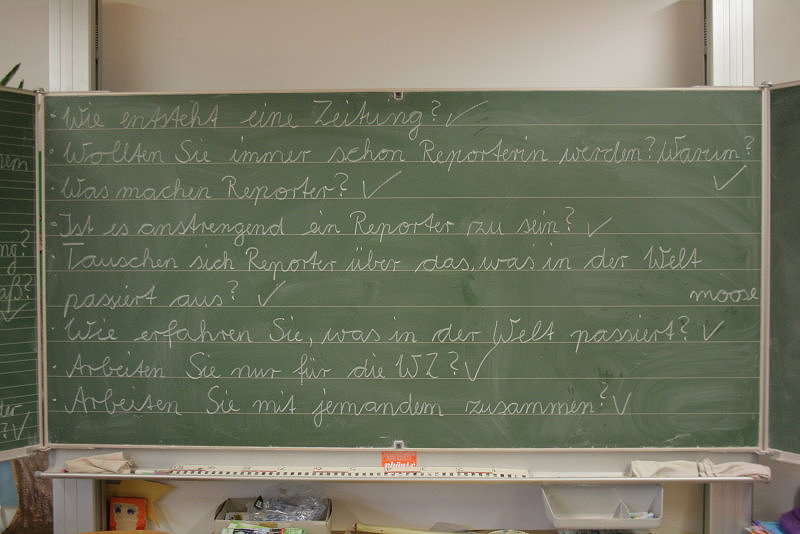 · Wie entsteht eine Zeitung? ✓
· Wollten Sie immer schon Reporterin werden? Warum? ✓
· Was machen Reporter? ✓
· Ist es anstrengend ein Reporter zu sein? ✓
· Tauschen sich Reporter über das, was in der Welt
passiert aus? ✓
moose
· Wie erfahren Sie, was in der Welt passiert? ✓
· Arbeiten Sie nur für die WZ? ✓
· Arbeiten Sie mit jemandem zusammen? ✓
nem
ng?
aß?
✓
der
? ✓
phönix